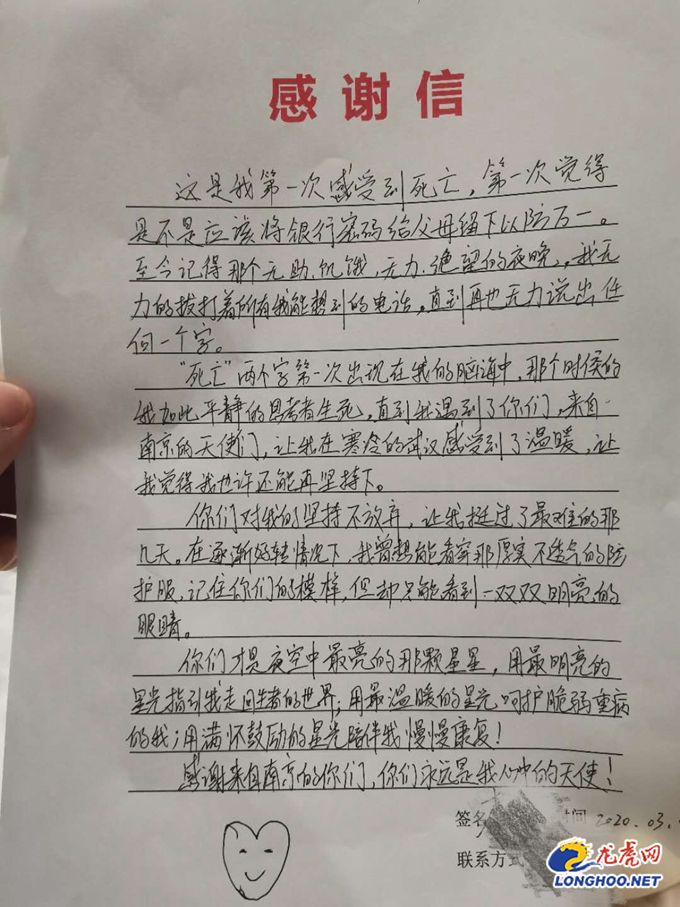 感谢信
这是我第一次感受到死亡，第一次觉得
是不是应该将银行密码给父母留下以防万一。
至今记得那个无助、饥饿、无力、绝望的夜晚，我无
力的拨打着所有我能想到的电话，直到再也无力说出任
何一个字。
"死亡"两个字第一次出现在我的脑海中，那个时候的
我如此平静的思考着生死，直到我遇到了你们，来自
南京的天使们，让我在寒冷的武汉感受到了温暖，让
我觉得我也许还能再坚持下。
你们对我的坚持不放弃，让我挺过了最难的那
几天。在逐渐好转情况下，我曾想能看穿那厚实不透气的防
护服，记住你们的模样，但却只能看到一双双明亮的
眼睛。
你们才是夜空中最亮的那颗星星，用最明亮的
星光指引我走回生者的世界；用最温暖的星光呵护脆弱重病
的我；用满怀鼓励的星光陪伴我慢慢康复！
感谢来自南京的你们，你们永远是我心中的天使！
签名 时间 2020.03.
联系方式
龙虎网
LONGHOO.NET